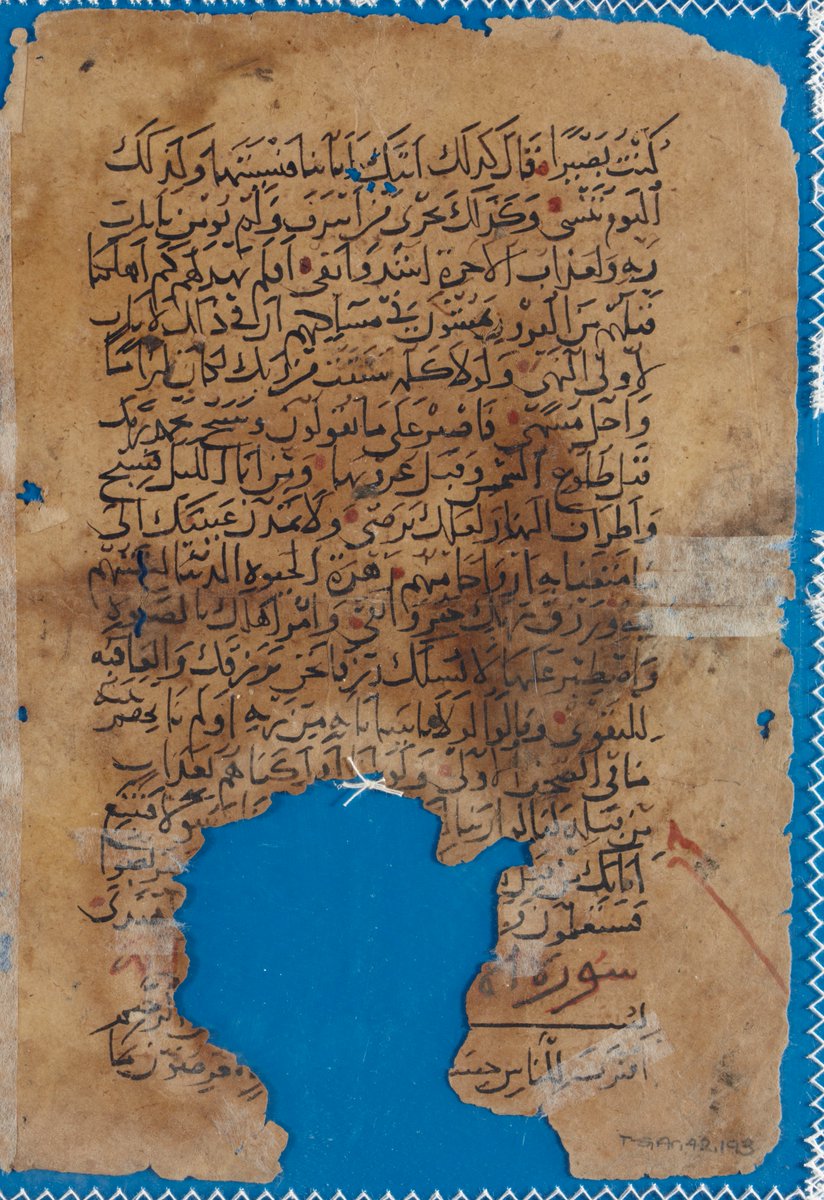 كنت بصيرا قال كذلك اتتك اياتنا فنسيتها وكذلك
اليوم تنسى وكذلك نجزي من اسرف ولم يومن بايات
ربه ولعذاب الاخرة اشد وابقى افلم يهد لهم كم اهلكنا
قبلهم من القرون يمشون في مساكنهم ان في ذلك لايات
لاولي النهى ولولا كلمه سبقت من ربك لكان لزاما
واجل مسمى فاصبر على ما يقولون وسبح بحمد ربك
قبل طلوع الشمس وقبل غروبها ومن اناء الليل فسبح
واطراف النهار لعلك ترضى ولا تمدن عينيك الى
ما متعنا به ازواجا منهم زهرة الحيوه الدنيا لنفتنهم
فيه ورزق ربك خير وابقى وامر اهلك بالصلوه
واصطبر عليها لا نسلك رزقا نحن نرزقك والعاقبه
للتقوى وقالوا لولا ياتينا بايه من ربه اولم تاتهم بينه
ما في الصحف الاولى ولو انا اهلكناهم بعذاب
من قبله لقالوا ربنا لو رسولا فنتبع
اياتك من قبل
فستعلمون اهتدى
سورة
بسم الرحيم
اقترب للناس حسا معرضون ما
T-S Ar.42.193